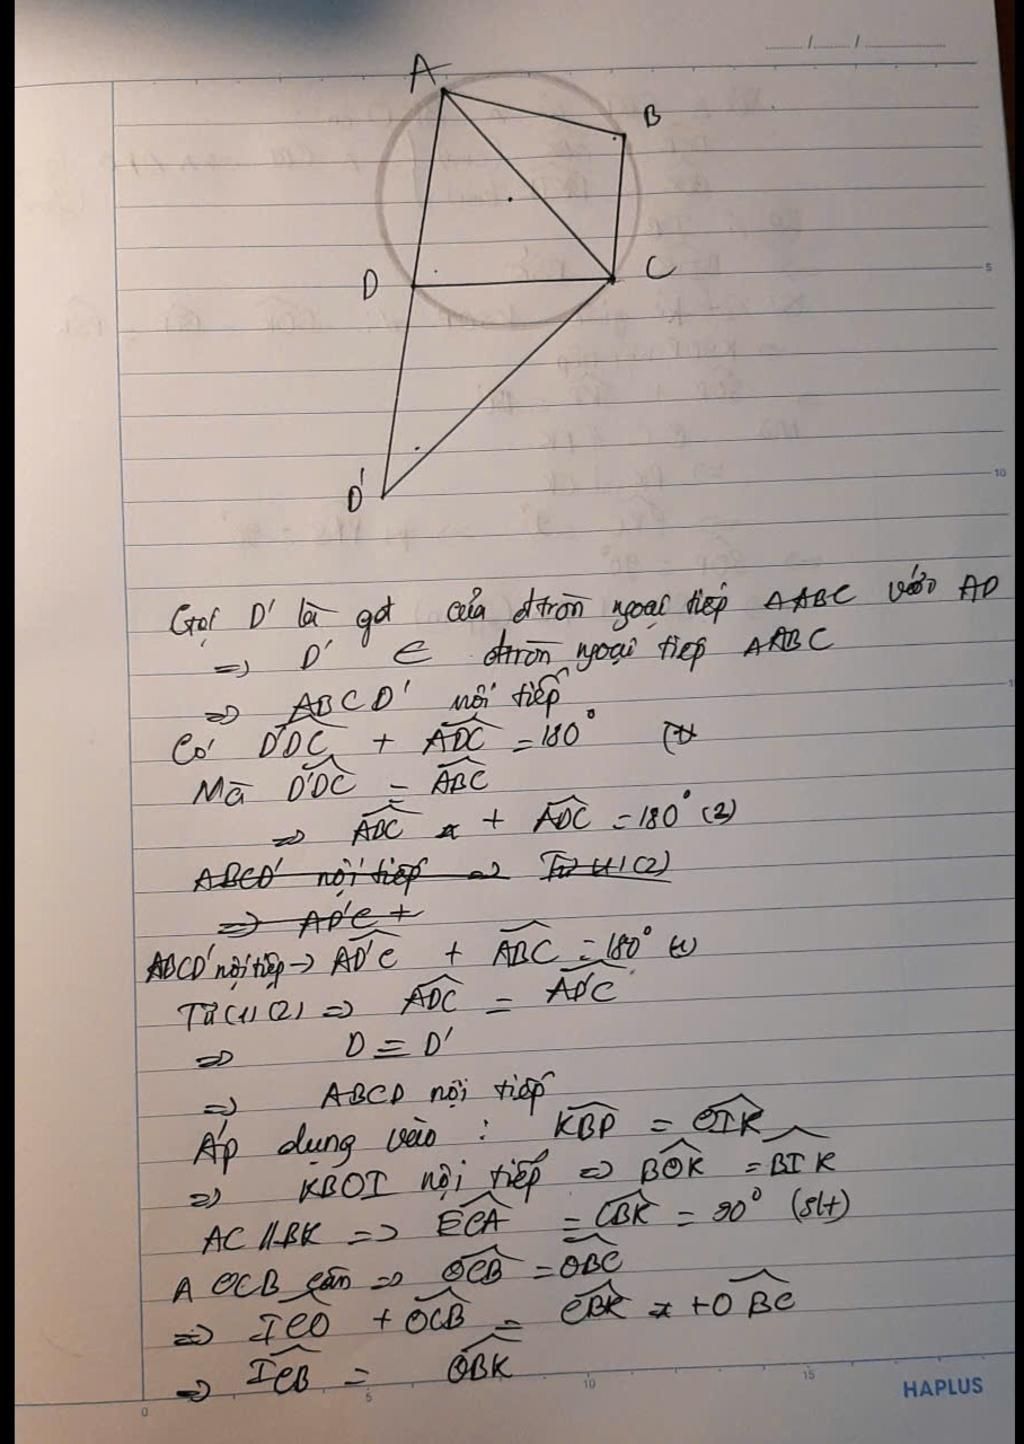 ....../....../............
A
B
D
C
5
D'
10
Gọi D' là gđ của đtròn ngoại tiếp ΔABC với AD
=> D' ∈ đtròn ngoại tiếp ΔABC
=> ABCD' nội tiếp
Có D'DC + ADC = 180° (1)
Mà D'DC = ABC
=> ABC + ADC = 180° (2)
ABCD' nội tiếp => Từ (1) (2)
=> AD'C +
ABCD' nội tiếp → AD'C + ABC = 180° (1)
Từ (1) (2) => ADC = AD'C
=> D ≡ D'
=> ABCD nội tiếp
Áp dụng vào : KBP = OIK
=> KBOI nội tiếp => BOK = BIK
AC // BK => ECA = CBK = 90° (slt)
Δ OCB cân => OCB = OBC
=> ICO + OCB = CBK + OBC
=> ICB = OBK
0 5 10 15
HAPLUS